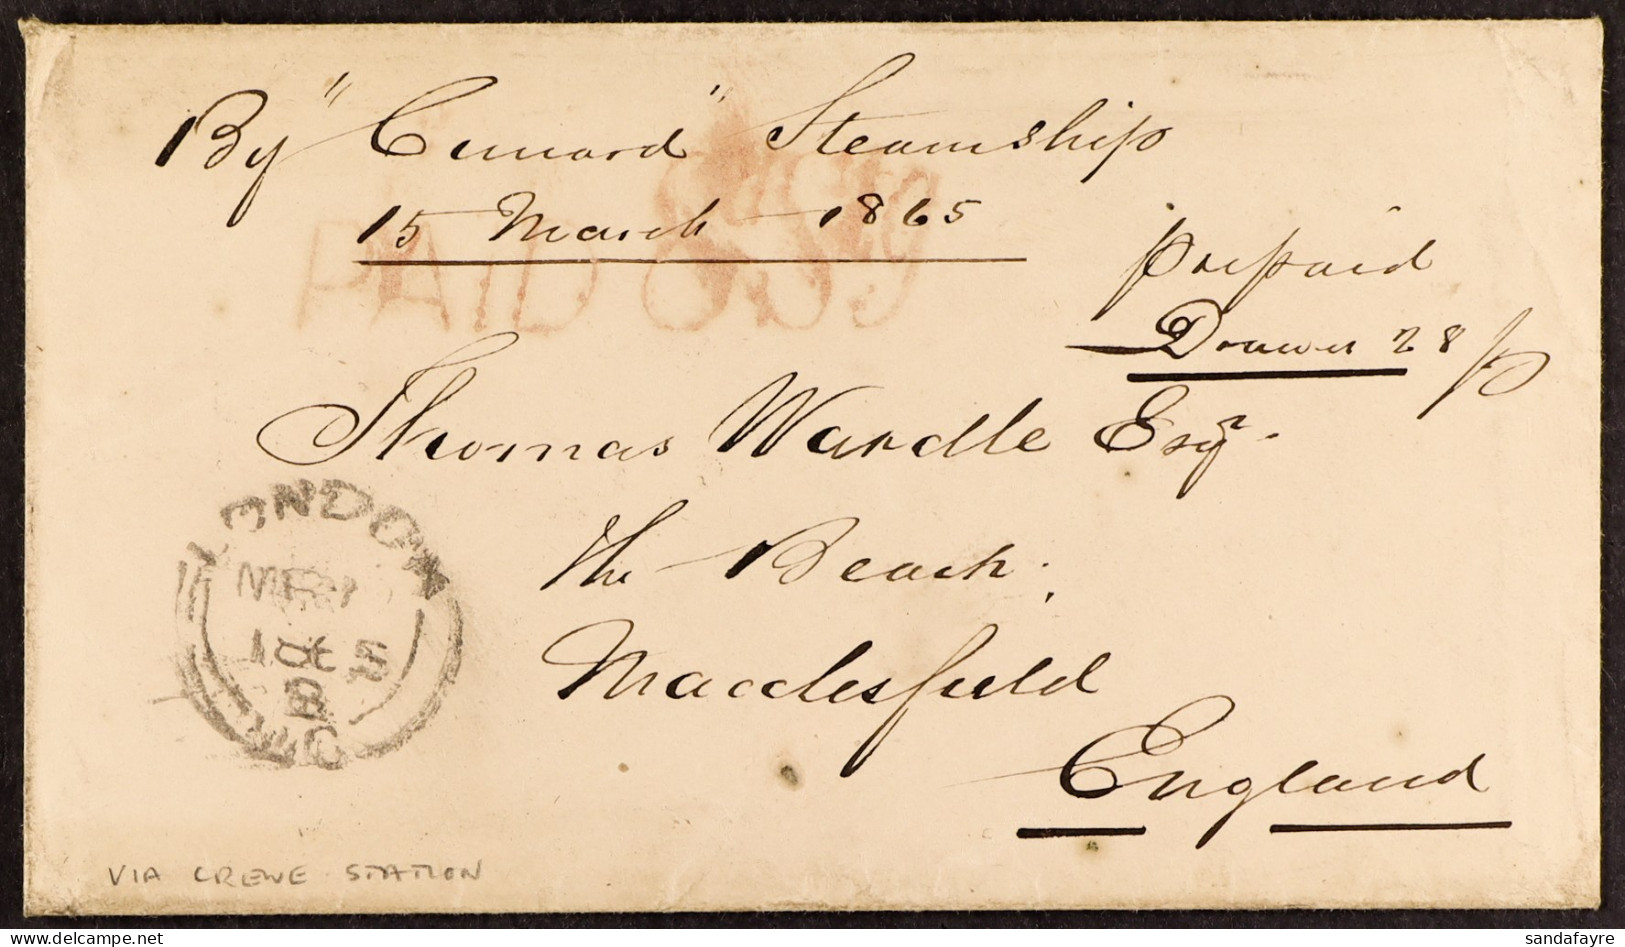 By "Cunard" Steamship
15 March 1865
PAID
prepaid
Drawer 28
Thomas Wardle Esqr.
The Beach.
Macclesfield
England
LONDON
VIA CREWE STATION
sandafayre